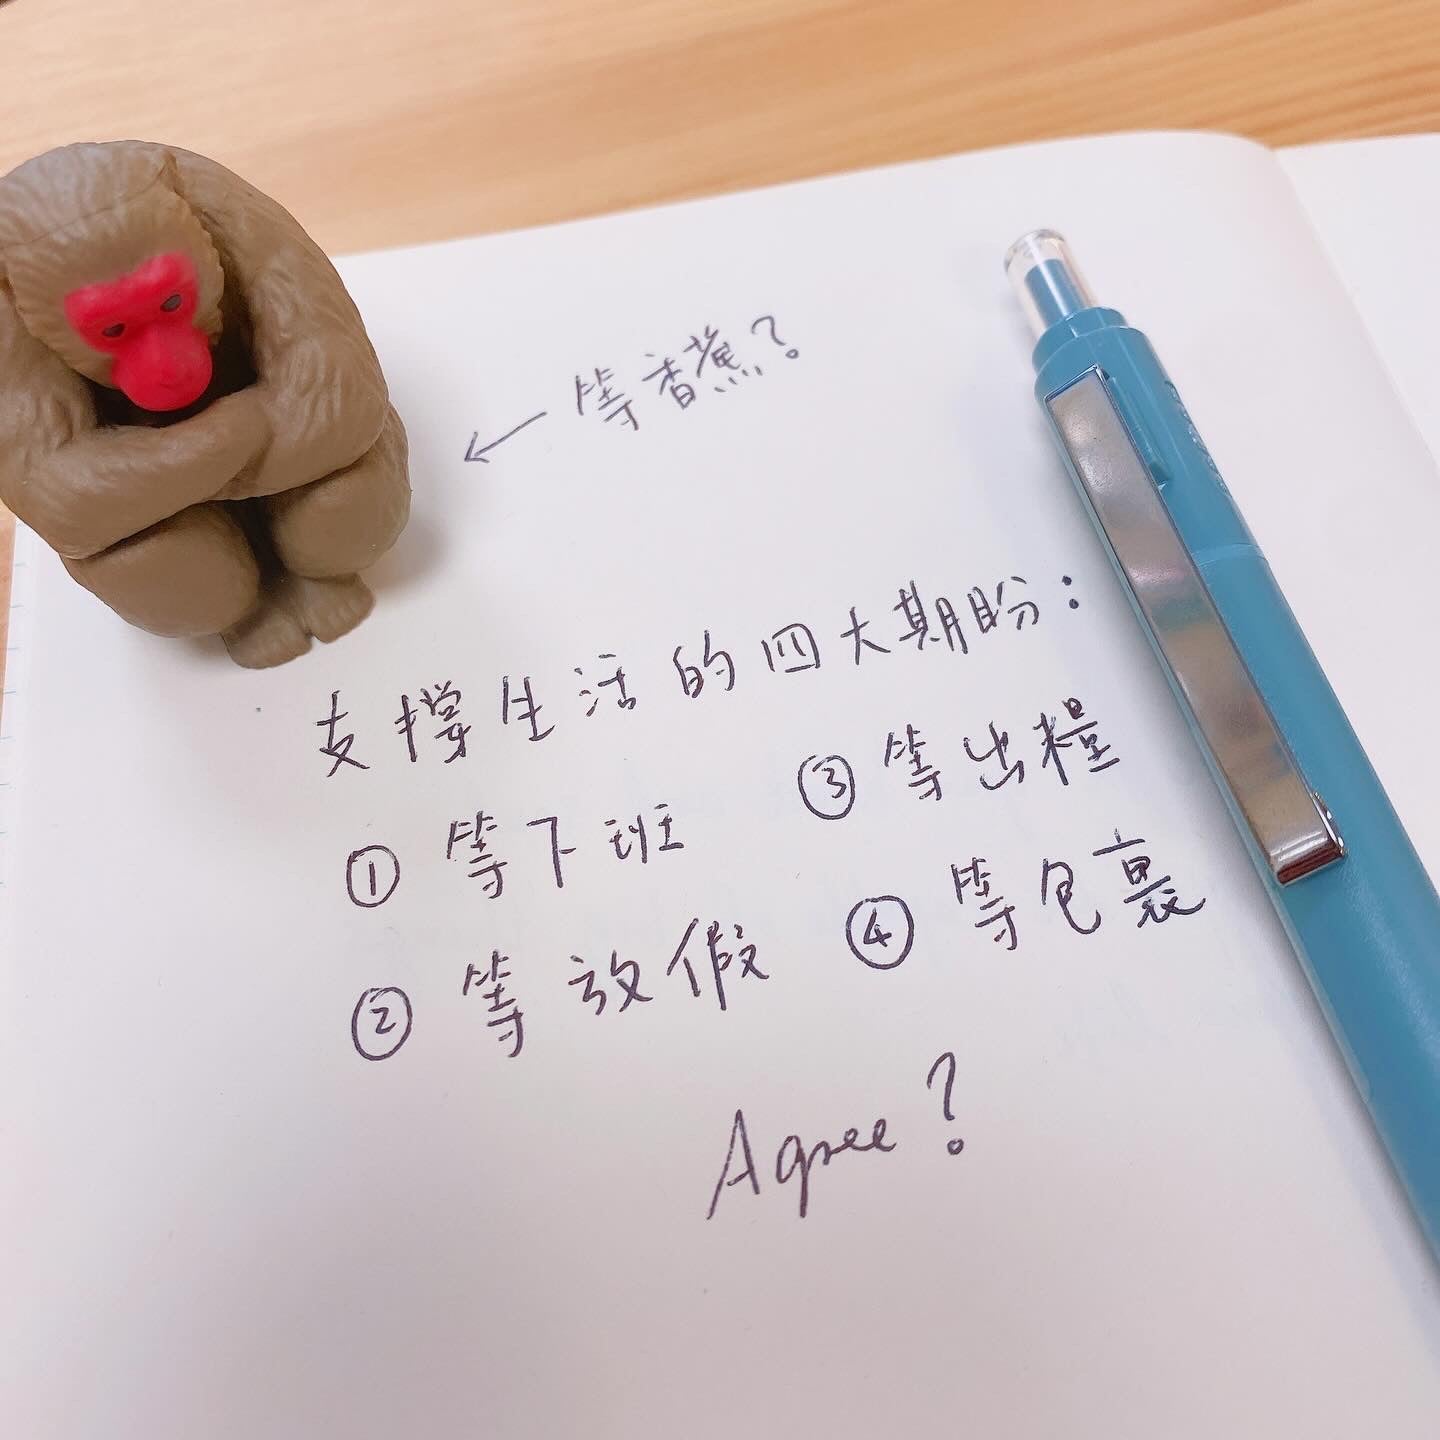 ← 等香蕉?
支撐生活的四大期盼:
① 等下班 ③ 等出糧
② 等放假 ④ 等包裹
Agree?